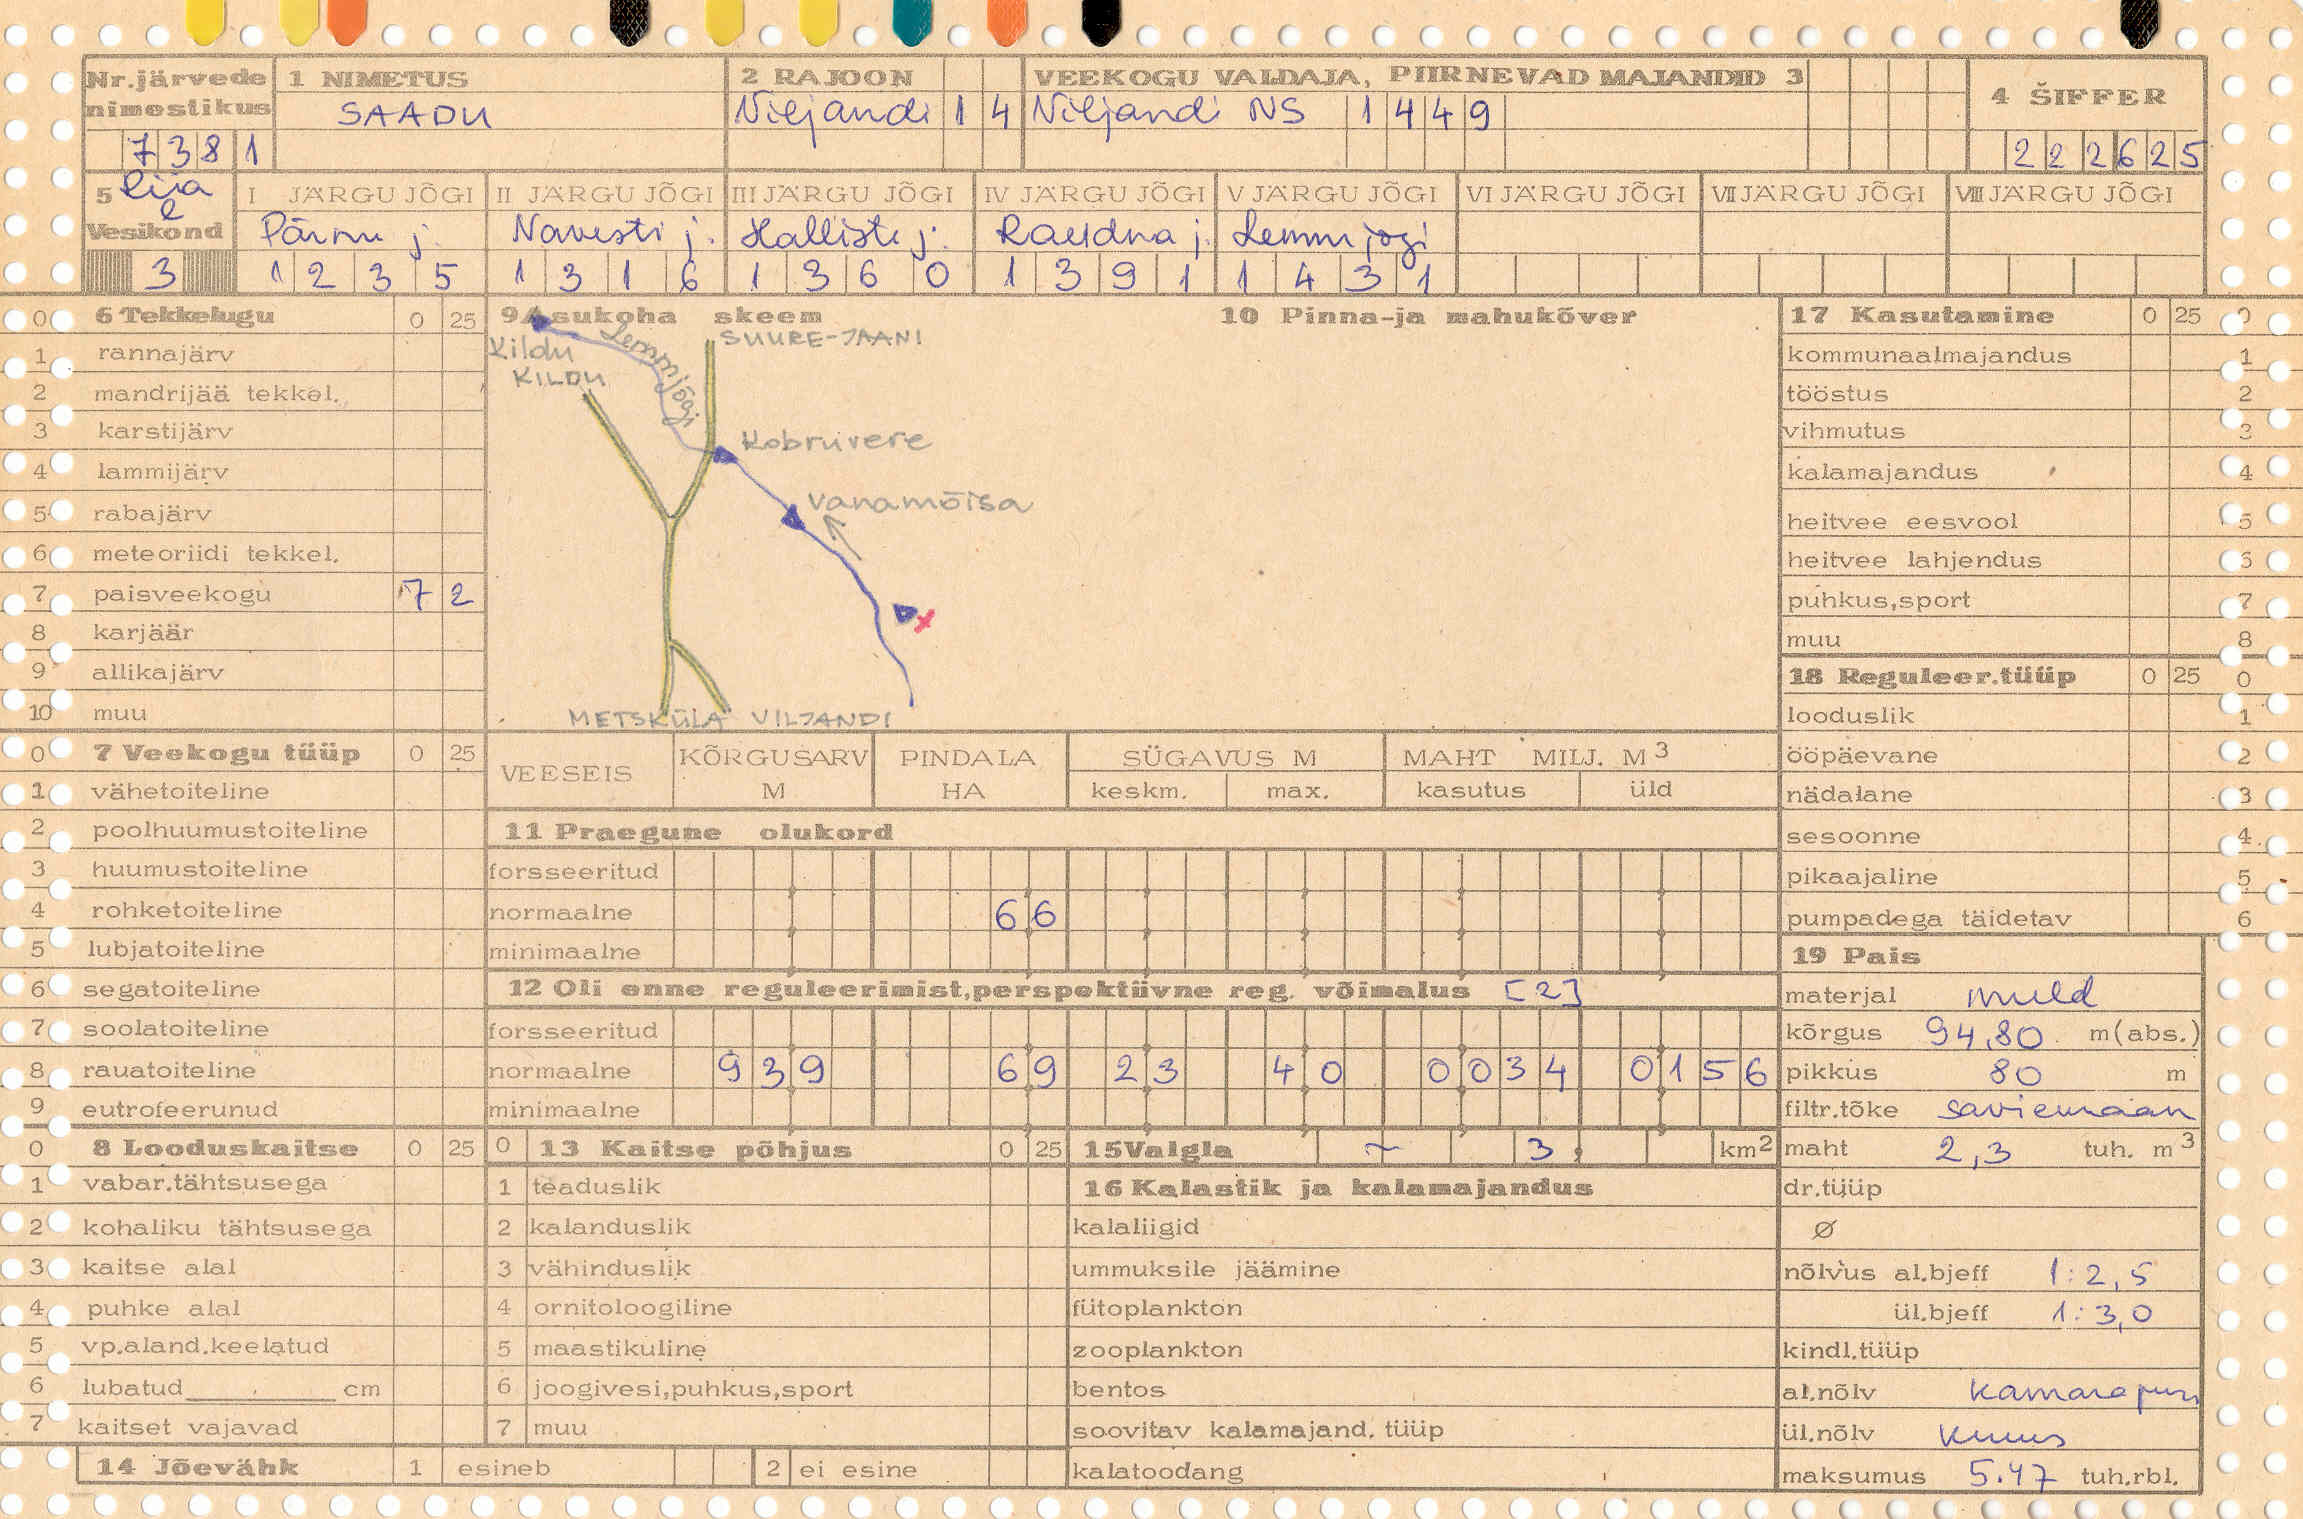 Nr.järvede nimestikus
7381
1 NIMETUS
SAADU
2 RAJOON
Viljandi 14
VEEKOGU VALDAJA, PIIRNEVAD MAJANDID 3
Viljandi NS 1449
4 ŠIFFER
222625
5 Vesikond
3
I JÄRGU JÕGI
Pärnu j.
1235
II JÄRGU JÕGI
Navesti j.
1316
III JÄRGU JÕGI
Halliste j.
1360
IV JÄRGU JÕGI
Raudna j.
1391
V JÄRGU JÕGI
Lemmjõgi
1431
VI JÄRGU JÕGI
VII JÄRGU JÕGI
VIII JÄRGU JÕGI
0 6 Tekkelugu 0 25
1 rannajärv
2 mandrijää tekkel.
3 karstijärv
4 lammijärv
5 rabajärv
6 meteoriidi tekkel.
7 paisveekogu 7 2
8 karjäär
9 allikajärv
10 muu
0 7 Veekogu tüüp 0 25
1 vähetoiteline
2 poolhuumustoiteline
3 huumustoiteline
4 rohketoiteline
5 lubjatoiteline
6 segatoiteline
7 soolatoiteline
8 rauatoiteline
9 eutrofeerunud
0 8 Looduskaitse 0 25
1 vabar.tähtsusega
2 kohaliku tähtsusega
3 kaitse alal
4 puhke alal
5 vp.aland.keelatud
6 lubatud cm
7 kaitset vajavad
14 Jõevähk 1 esineb 2 ei esine
9 Asukoha skeem
Kildu
KILDU
Lemmjõgi
SUURE-JAANI
Kobruvere
Vanamõisa
METSKÜLA VILJANDI
10 Pinna-ja mahukõver
VEESEIS
KÕRGUSARV M
PINDALA HA
SÜGAVUS M
keskm. max.
MAHT MILJ. M3
kasutus üld
11 Praegune olukord
forsseeritud
normaalne 66
minimaalne
12 Oli enne reguleerimist,perspektiivne reg. võimalus [2]
forsseeritud
normaalne 939 69 23 40 0034 0156
minimaalne
0 13 Kaitse põhjus 0 25
1 teaduslik
2 kalanduslik
3 vähinduslik
4 ornitoloogiline
5 maastikuline
6 joogivesi,puhkus,sport
7 muu
15 Valgla ~ 3, km2
16 Kalastik ja kalamajandus
kalaliigid
ummuksile jäämine
fütoplankton
zooplankton
bentos
soovitav kalamajand. tüüp
kalatoodang
17 Kasutamine 0 25 0
kommunaalmajandus 1
tööstus 2
vihmutus 3
kalamajandus 4
heitvee eesvool 5
heitvee lahjendus 6
puhkus,sport 7
muu 8
18 Reguleer.tüüp 0 25 0
looduslik 1
ööpäevane 2
nädalane 3
sesoonne 4
pikaajaline 5
pumpadega täidetav 6
19 Pais
materjal muld
kõrgus 94,80 m(abs.)
pikkus 80 m
filtr.tõke saviekraan
maht 2,3 tuh. m3
dr.tüüp
Ø
nõlvus al.bjeff 1:2,5
ül.bjeff 1:3,0
kindl.tüüp
al.nõlv
ül.nõlv
maksumus 5.47 tuh.rbl.